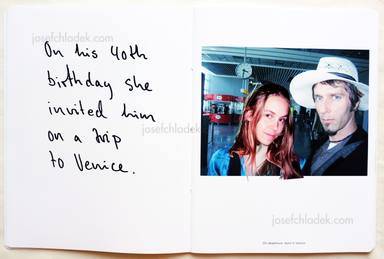 On his 40th
birthday she
invited him
on a trip
to Venice.
josefchladek.com
josefchladek.com
josefchladek.com
josefchladek.com